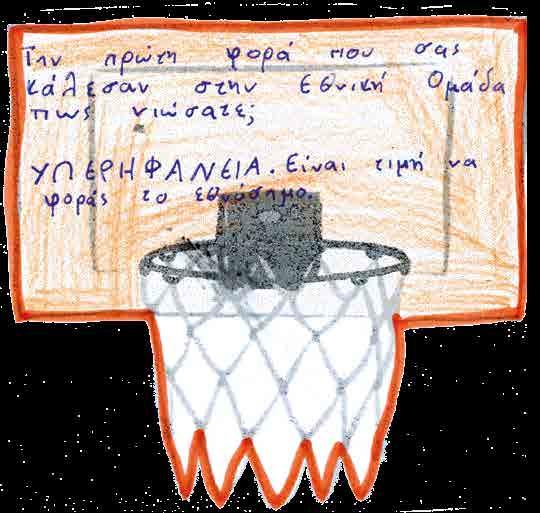 Την πρώτη φορά που σας
κάλεσαν στην Εθνική Ομάδα
πως νιώσατε;
ΥΠΕΡΗΦΑΝΕΙΑ. Είναι τιμή να
φοράς το εθνόσημο.